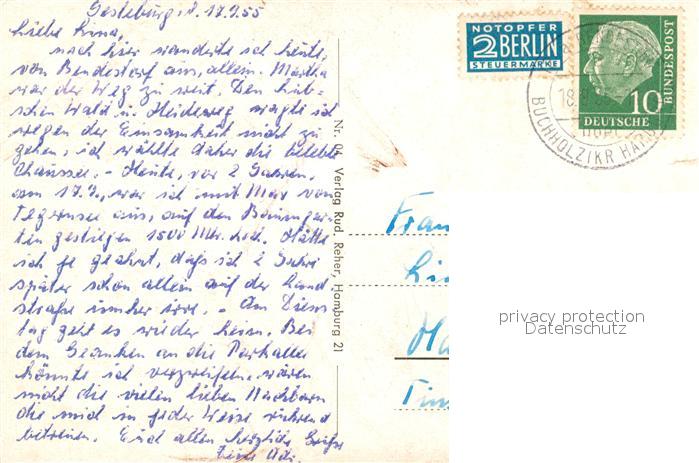 Jesteburg, d. 17.9.55
Liebe Erna,
nach hier wanderte ich heute,
von Bendestorf aus, allein. Martha
war der Weg zu weit. Den hüb-
schen Wald u. Heideweg wagte ich
wegen der Einsamkeit nicht zu
gehen, ich wählte daher die belebte
Chaussee. - Heute, vor 2 Jahren,
am 17.9., war ich mit Max von
Tegernsee aus, auf den Baumgar-
ten gestiegen 1500 Mtr. hoch. Hätte
ich je geahnt, daß ich 2 Jahre
später schon allein auf der Land
straße umher irre. - Am Diens
tag geht es wieder heim. Bei
dem Gedanken an die Parkallee
könnte ich verzweifeln, wären
nicht die vielen lieben Nachbarn
die mich in jeder Weise rührend
betreuen. Euch allen herzliche Grüße
Eure Adi.
Nr. 04 Verlag Rud. Reher, Hamburg 21
NOTOPFER
2 BERLIN
STEUERMARKE
10
DEUTSCHE
BUNDESPOST
BUCHHOLZ KR HARBURG
Frau
privacy protection
Datenschutz